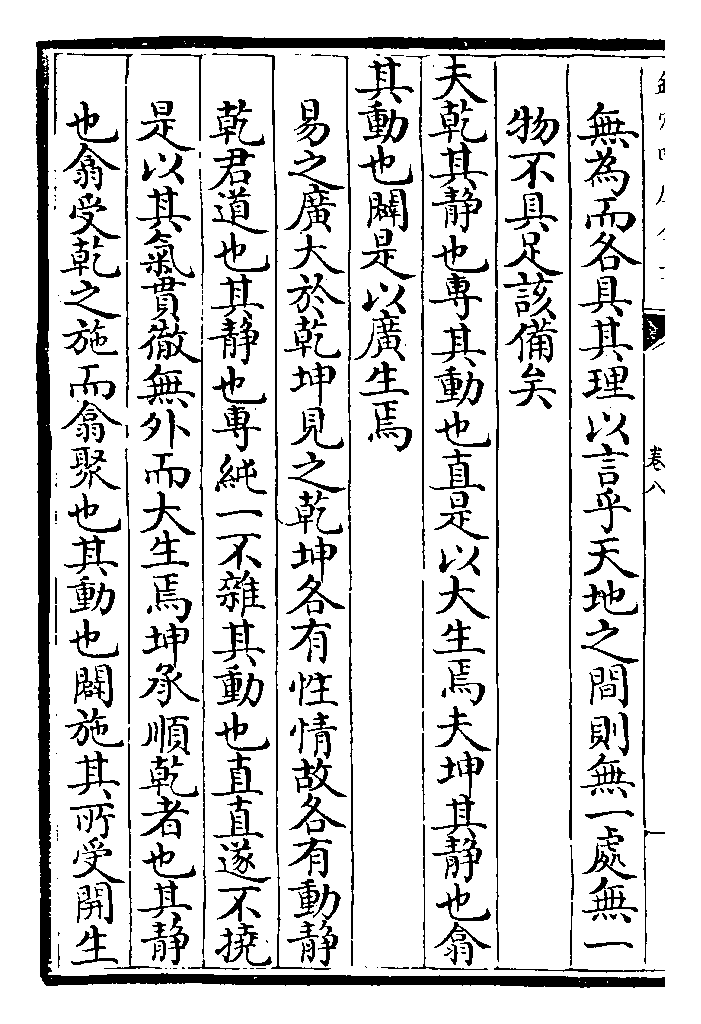 卷八
無為而各具其理以言乎天地之間則無一處無一
物不具足該備矣
夫乾其静也専其動也直是以大生焉夫坤其静也翕
其動也闢是以廣生焉
易之廣大於乾坤見之乾坤各有性情故各有動静
乾君道也其静也専純一不雜其動也直直遂不撓
是以其氣貫徹無外而大生焉坤承順乾者也其静
也翕受乾之施而翕聚也其動也闢施其所受開生